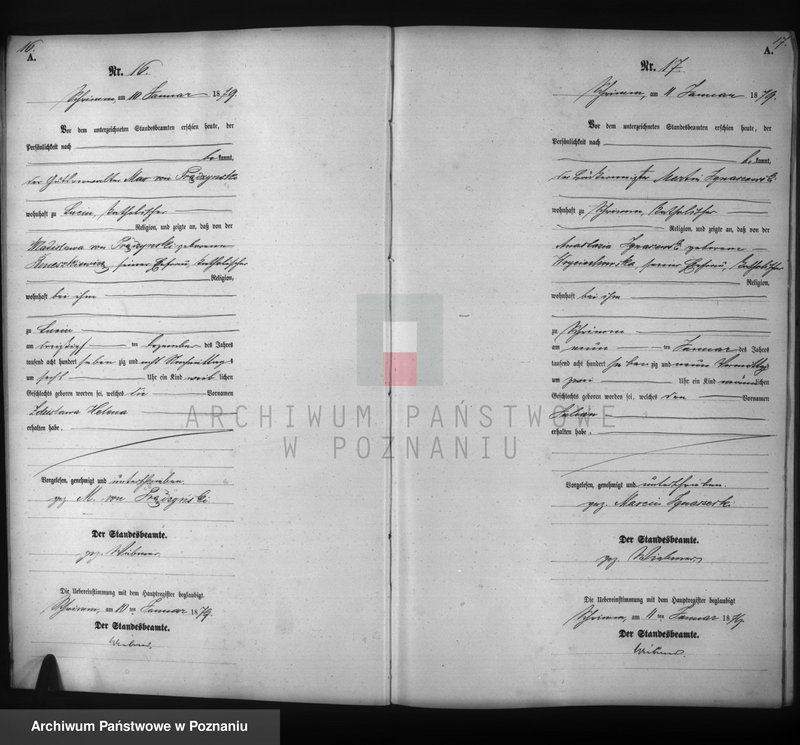 16.
A.
Nr. 16.
Schrimm, am 10 Januar 1879.
Vor dem unterzeichneten Standesbeamten erschien heute, der
Persönlichkeit nach
be kannt,
der Gutsverwalter Max von
wohnhaft zu Lucin, katholischer
Religion, und zeigte an, daß von der
Wladislawa von geborenen
seiner Ehefrau, katholischer
Religion,
wohnhaft bei ihm
zu Lucin
am dreißig ten Dezember des Jahres
tausend acht hundert sieben zig und acht Nachmittags
um sechs Uhr ein Kind weib lichen
Geschlechts geboren worden sei, welches die Vornamen
Zdzislawa Helena
erhalten habe.
Vorgelesen, genehmigt und unterschrieben.
gez. M. von
Der Standesbeamte.
gez.
Die Uebereinstimmung mit dem Hauptregister beglaubigt
Schrimm, am 10 ten Januar 1879.
Der Standesbeamte.
17.
A.
Nr. 17
Schrimm, am 11 Januar 1879.
Vor dem unterzeichneten Standesbeamten erschien heute, der
Persönlichkeit nach
be kannt,
der Martin
wohnhaft zu Schrimm, katholischer
Religion, und zeigte an, daß von der
Anastasia geborene
seiner Ehefrau, katholischer
Religion,
wohnhaft bei ihm
zu Schrimm
am neun ten Januar des Jahres
tausend acht hundert sieben zig und neun Vormittags
um zwei Uhr ein Kind männlichen
Geschlechts geboren worden sei, welches den Vornamen
Julian
erhalten habe.
Vorgelesen, genehmigt und unterschrieben.
gez. Marcin
Der Standesbeamte.
gez.
Die Uebereinstimmung mit dem Hauptregister beglaubigt
Schrimm, am 11 ten Januar 1879.
Der Standesbeamte.
ARCHIWUM PAŃSTWOWE
W POZNANIU
Archiwum Państwowe w Poznaniu